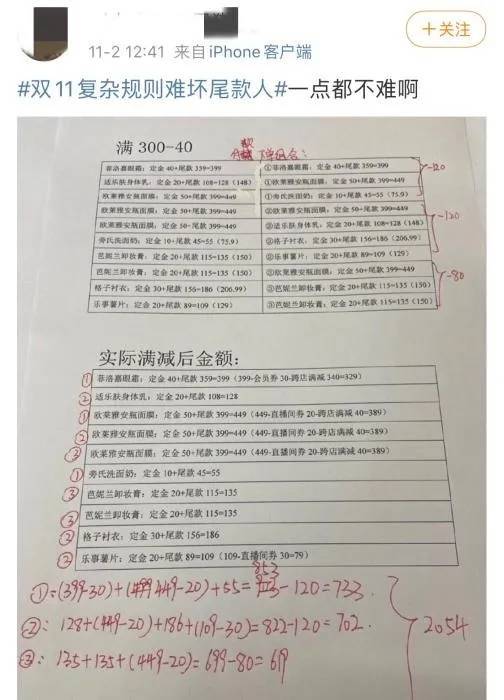 11-2 12:41 来自 iPhone客户端
+关注
#双11复杂规则难坏尾款人#一点都不难啊
满 300-40
分款下单组合:
菲洛嘉眼霜:定金 40+尾款 359=399
①菲洛嘉眼霜:定金 40+尾款 359=399
适乐肤身体乳:定金 20+尾款 108=128(148)
①欧莱雅安瓶面膜:定金 50+尾款 399=449
欧莱雅安瓶面膜:定金 50+尾款 399=449
①旁氏洗面奶:定金 10+尾款 45=55(75.9)
-120
欧莱雅安瓶面膜:定金 50+尾款 399=449
②欧莱雅安瓶面膜:定金 50+尾款 399=449
欧莱雅安瓶面膜:定金 50+尾款 399=449
②适乐肤身体乳:定金 20+尾款 108=128(148)
旁氏洗面奶:定金 10+尾款 45=55(75.9)
②格子衬衣:定金 30+尾款 156=186(206.99)
芭妮兰卸妆膏:定金 20+尾款 115=135(150)
②乐事薯片:定金 20+尾款 89=109(129)
-120
芭妮兰卸妆膏:定金 20+尾款 115=135(150)
③欧莱雅安瓶面膜:定金 50+尾款 399=449
格子衬衣:定金 30+尾款 156=186(206.99)
③芭妮兰卸妆膏:定金 20+尾款 115=135(150)
乐事薯片:定金 20+尾款 89=109(129)
③芭妮兰卸妆膏:定金 20+尾款 115=135(150)
-80
实际满减后金额:
① 菲洛嘉眼霜:定金 40+尾款 359=399(399-会员券 30-跨店满减 340=329)
② 适乐肤身体乳:定金 20+尾款 108=128
① 欧莱雅安瓶面膜:定金 50+尾款 399=449(449-直播间券 20-跨店满减 40=389)
② 欧莱雅安瓶面膜:定金 50+尾款 399=449(449-直播间券 20-跨店满减 40=389)
③ 欧莱雅安瓶面膜:定金 50+尾款 399=449(449-直播间券 20-跨店满减 40=389)
① 旁氏洗面奶:定金 10+尾款 45=55
③ 芭妮兰卸妆膏:定金 20+尾款 115=135
③ 芭妮兰卸妆膏:定金 20+尾款 115=135
② 格子衬衣:定金 30+尾款 156=186
② 乐事薯片:定金 20+尾款 89=109(109-直播间券 30=79)
①=(399-30)+(449-20)+55=853-120=733
②:128+(449-20)+186+(109-30)=822-120=702
③:135+135+(449-20)=699-80=619
2054